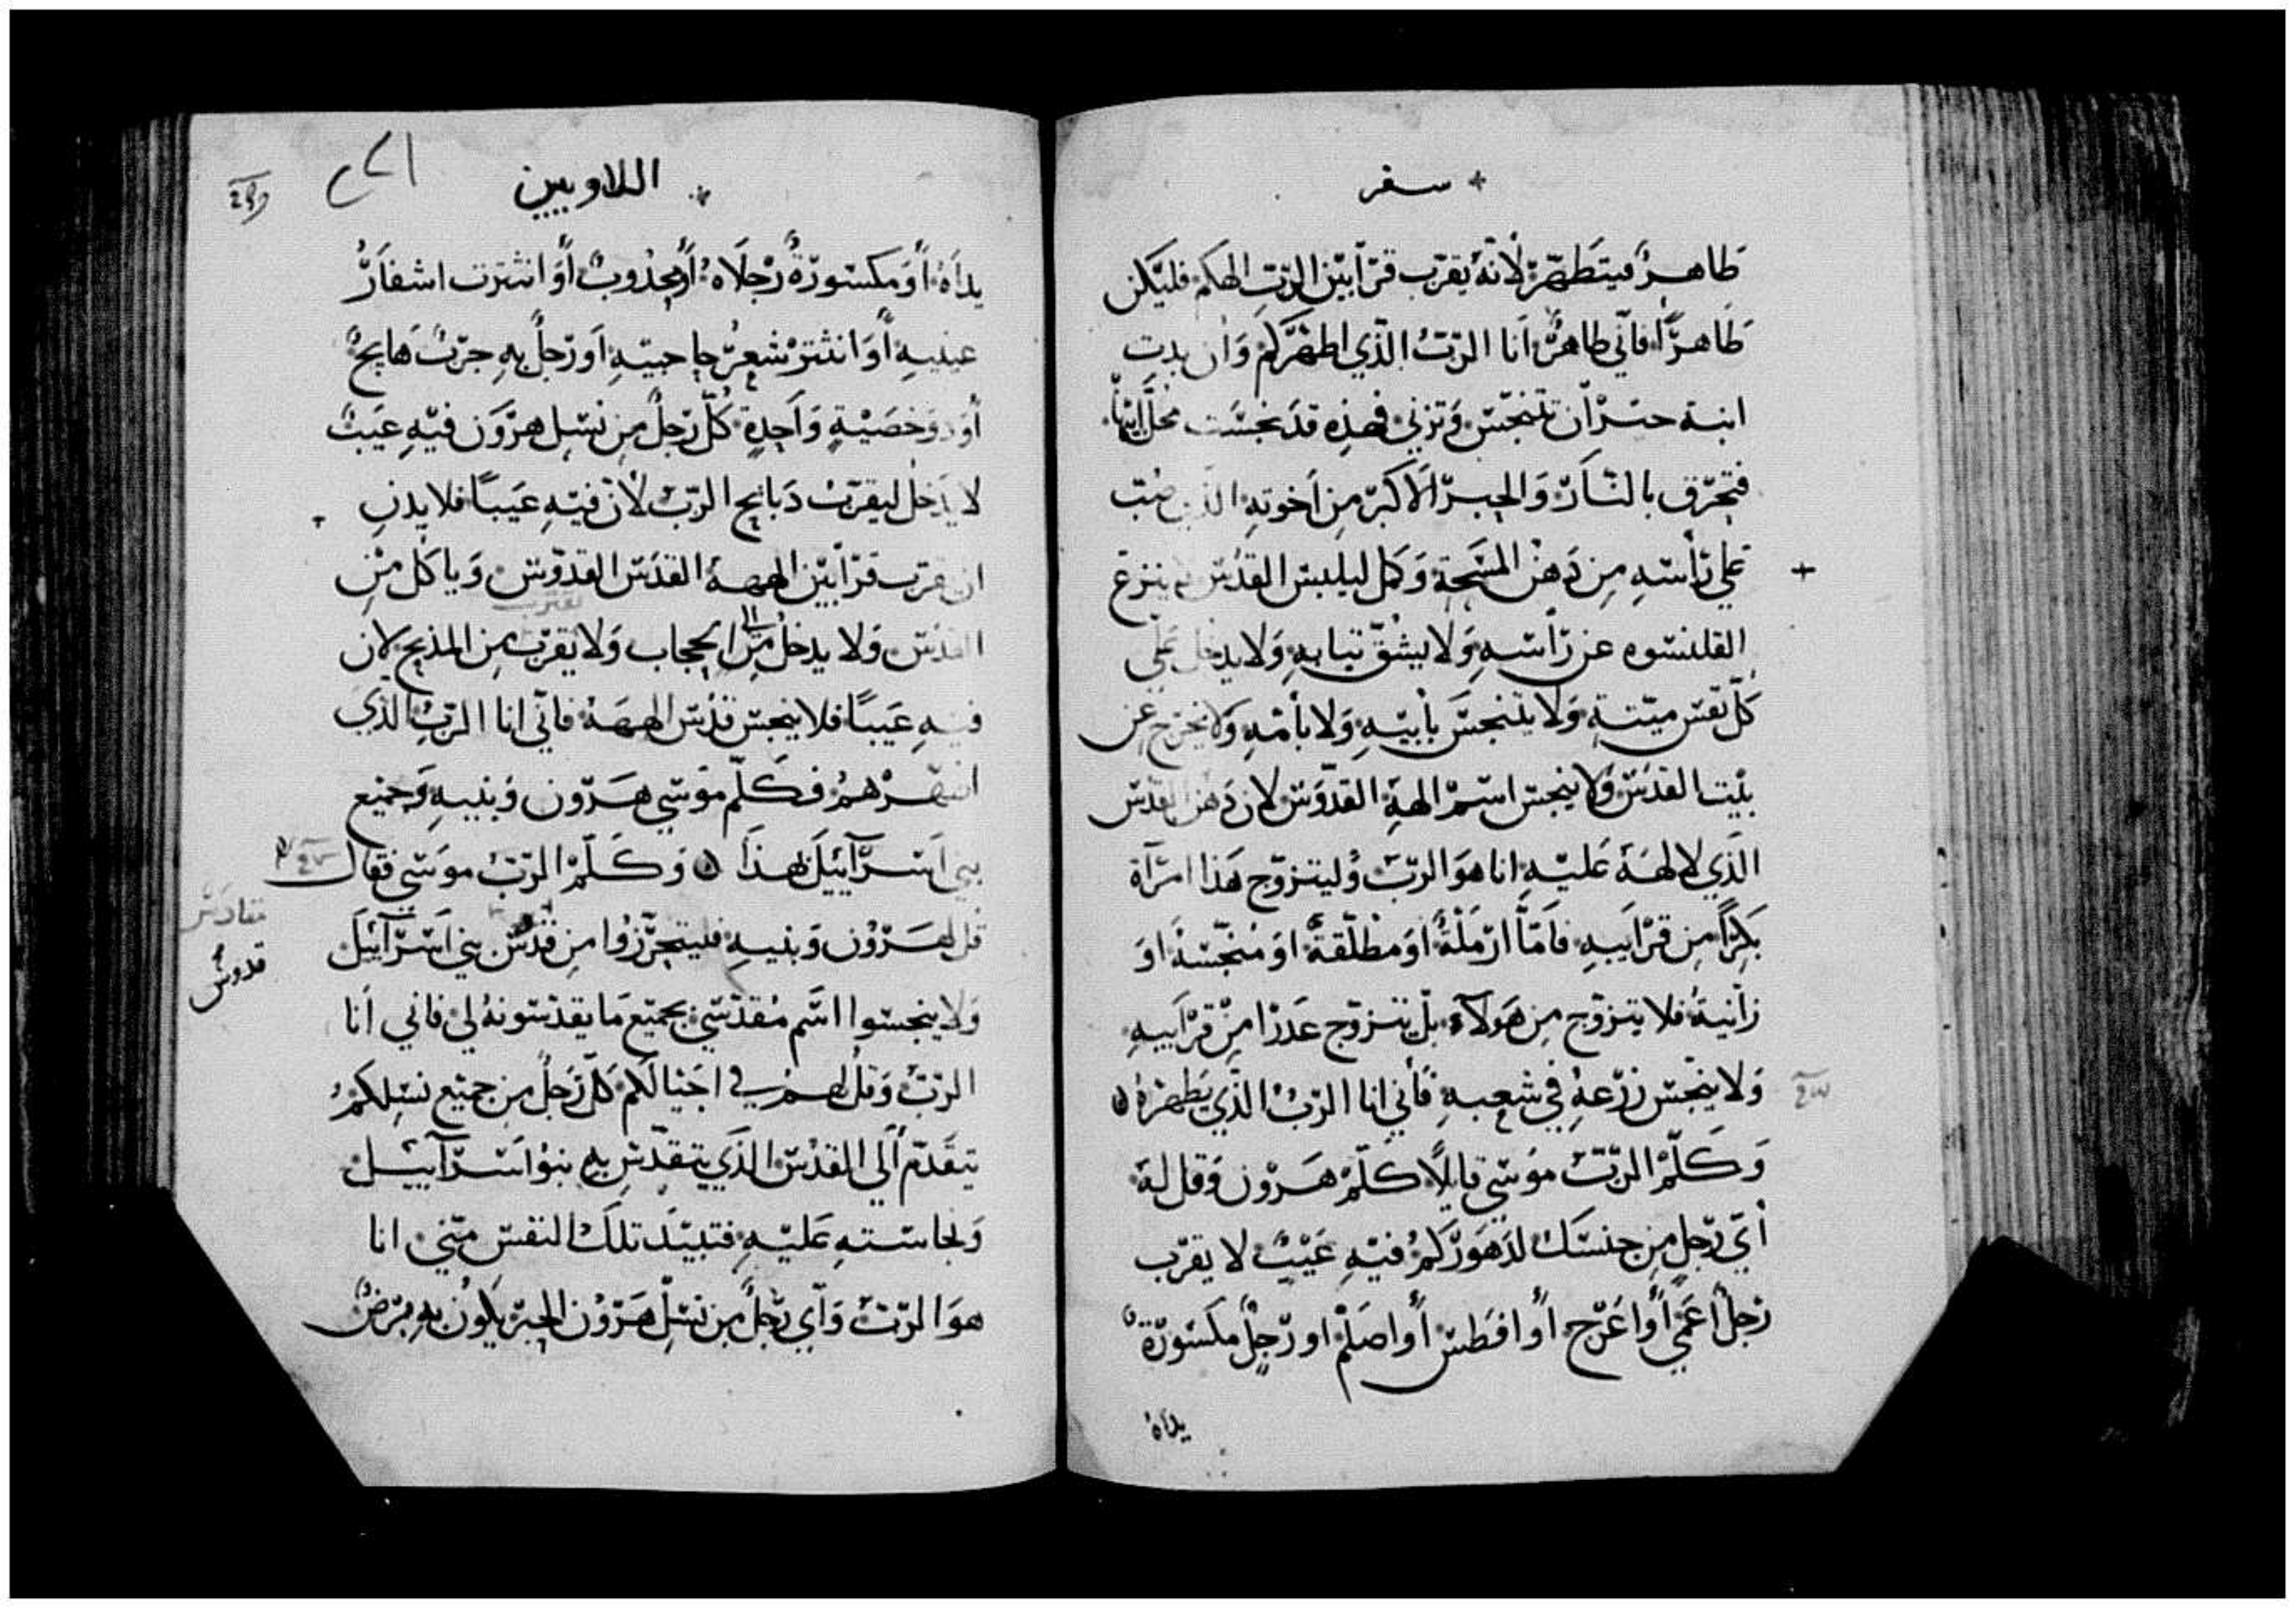 سفر
طاهرًا فيتطهّر لانّه يقرّب قرابين الربّ الهكم فليكن
طاهرًا فاني طاهرٌ أنا الربّ الذي اطهّركم وان بدت
ابنة حبر ان تتنجّس وتزني فهذه قد نجست محلّ ابيها
فتحرق بالنار والحبر الاكبر من أخوته الذي صُبّ
علي رأسه من دهن المسحة وكمل ليلبس القدس لم ينزع
القلنسوه عن رأسه ولا يشقّ تيابه ولا يدخل علي
كلّ نفس ميّتة ولا يتنجس بأبيه ولا بأمّه ولا يخرج عن
بيت القدس ولا ينجس اسم الهه القدّوس لان دهن القدس
الذي لالهه عليه انا هو الربّ وليتزوّج هذا امرآة
بكرًا من قرابيه فامّا ارملةً او مطلّقةً او منجّسةً او
زانيةً فلا يتزوّج من هولآء بل يتزوّج عدرا من قرابيه
ولا ينجّس زرعه في شعبه فأني انا الربّ الذي يطهّره
وكلّم الربّ موسي قايلاً كلّم هرون وقل له
أيّ رجل من جنسك لدهوركم فيه عيبٌ لا يقرّب
رجلٌ اعمي أو اعرج أو افطس أو اصلم او رجلٌ مكسورة
يداه
اللاويين
يداه أو مكسورة رجلاه أو مجدوبٌ أو انتترت اشفار
عينيه أو انتتر شعر حاجبيه او رجلٌ به جربٌ هايجٌ
أو دو خصيةٍ واحدةٍ كلّ رجل من نسل هرون فيه عيبٌ
لا يدخل ليقرّب دبايح الربّ لأن فيه عيبًا فلا يدنِ
ان يقرب قرابين الهه القدس القدّوس وياكل من
القدس ولا يدخل من الي الحجاب ولا يقرب من المذبح لان
يقترب
فيه عيبًا فلا ينجس قدس الهه فاني انا الربّ الذي
اطهرهم فكلّم موسي هرون وبنيه وجميع
بني اسرآييل بهذا وكلّم الربّ موسي فقال
قل لهرون وبنيه فليتحرّزوا من قدس بني اسرآييل
مقادس
قدوس
ولا ينجسوا اسم مقدّسي بجميع ما يقدّسونه لي فاني أنا
الربّ وقل لهم في اجيالكم كلّ رجلٌ من جميع نسلكم
يتقدّم ألي القدس الذي يتقدّس به بنو اسرآييل
ونجاسته عليه فتبيد تلك النفس منّي انا
هو الربّ وأي رجلٌ من نسل هرون الحبر يكون به برصٌ